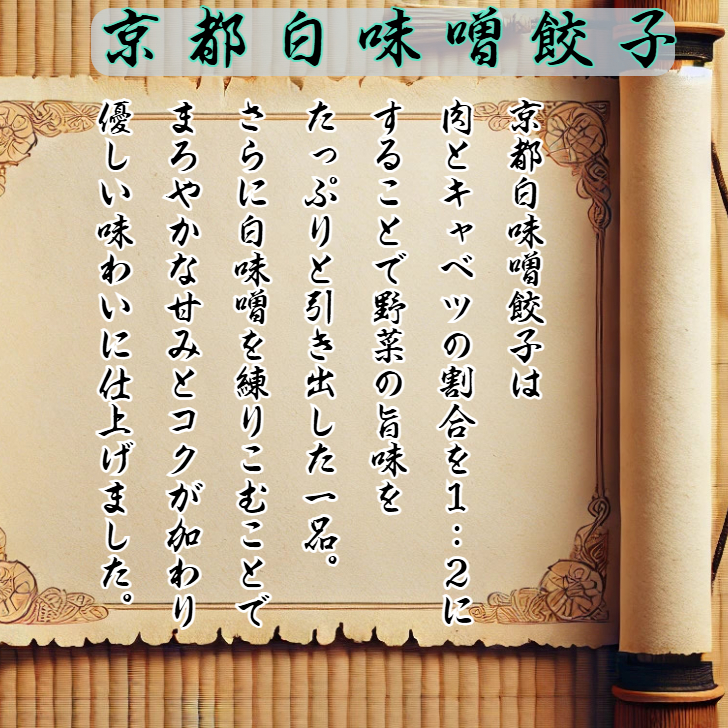 京都白味噌餃子
京都白味噌餃子は
肉とキャベツの割合を1：2に
することで野菜の旨味を
たっぷりと引き出した一品。
さらに白味噌を練りこむことで
まろやかな甘みとコクが加わり
優しい味わいに仕上げました。